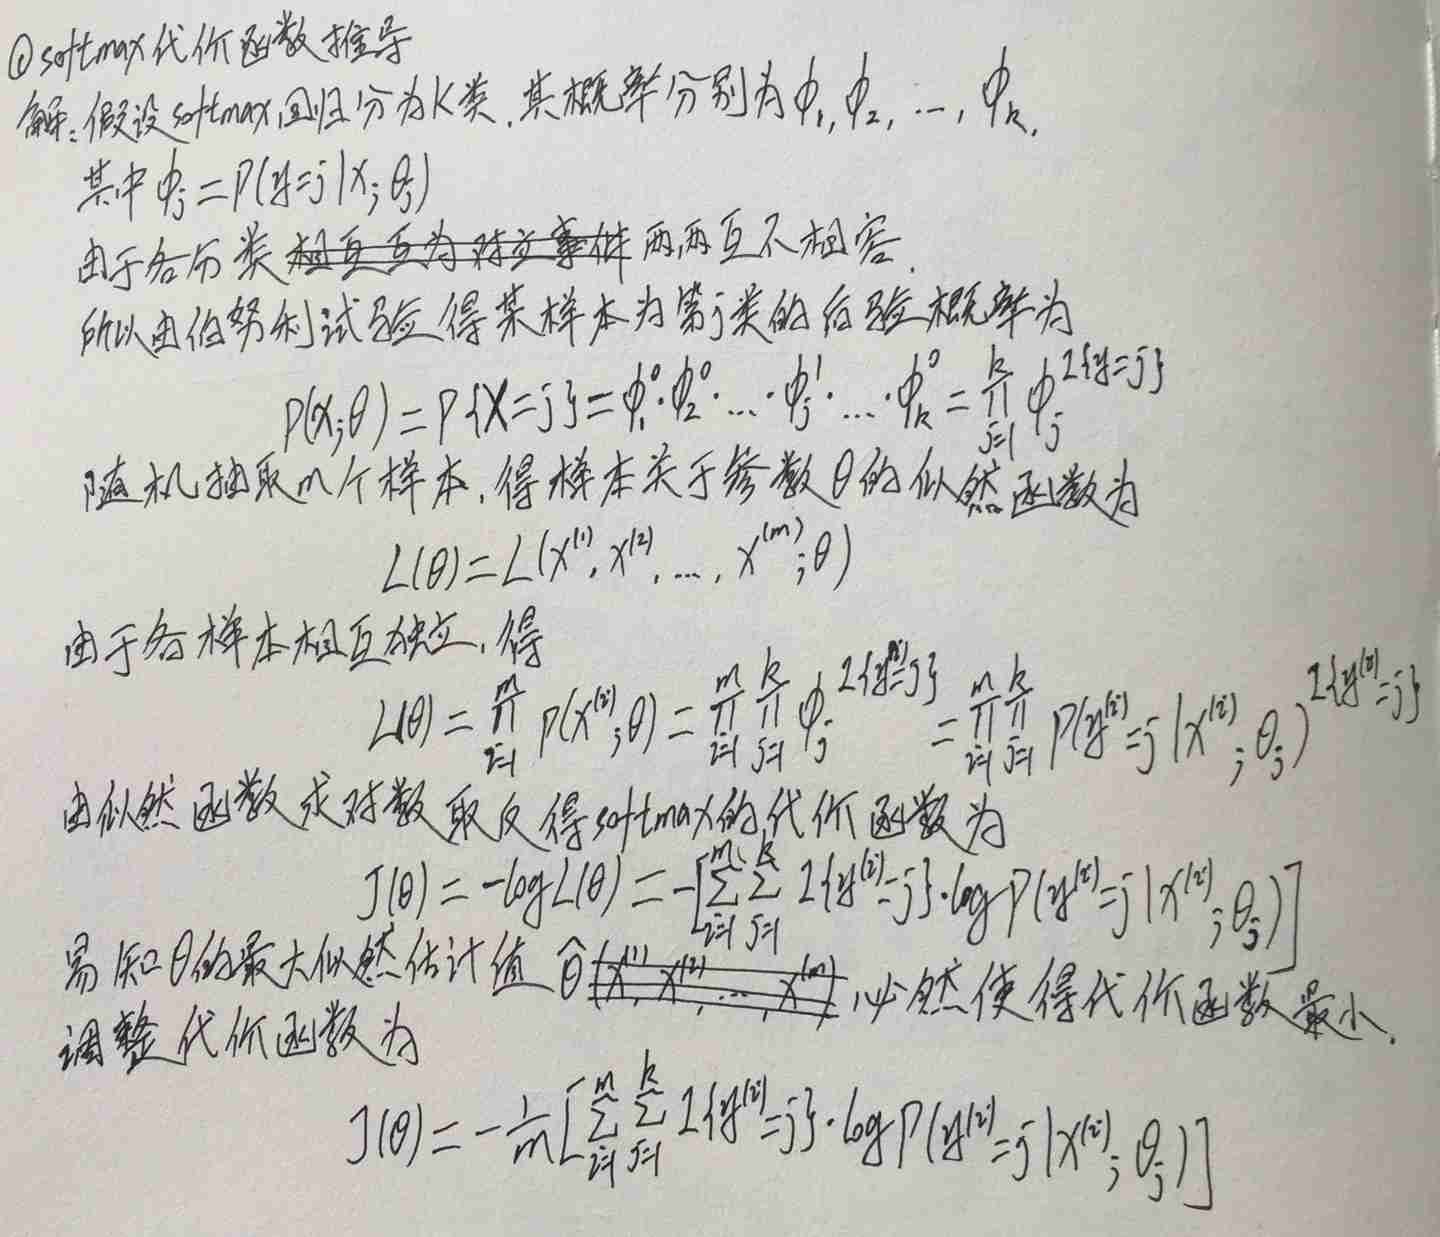 ①softmax代价函数推导
解:假设softmax回归分为k类,其概率分别为ϕ₁,ϕ₂,…,ϕₖ.
其中ϕⱼ=P(y=j|x;θⱼ)
由于各分类相互互为对立事件两两互不相容.
所以由伯努利试验得某样本为第j类的后验概率为
P(x;θ)=P{X=j}=ϕ₁⁰·ϕ₂⁰·…·ϕⱼ¹·…·ϕₖ⁰=∏_{j=1}^{k} ϕⱼ^{1{y=j}}
随机抽取m个样本,得样本关于参数θ的似然函数为
L(θ)=L(x^{(1)},x^{(2)},…,x^{(m)};θ)
由于各样本相互独立,得
L(θ)=∏_{i=1}^{m} P(x^{(i)};θ)=∏_{i=1}^{m}∏_{j=1}^{k} ϕⱼ^{1{y^{(i)}=j}}=∏_{i=1}^{m}∏_{j=1}^{k} P(y^{(i)}=j|x^{(i)};θⱼ)^{1{y^{(i)}=j}}
由似然函数求对数取反得softmax的代价函数为
J(θ)=-logL(θ)=-[∑_{i=1}^{m}∑_{j=1}^{k} 1{y^{(i)}=j}·logP(y^{(i)}=j|x^{(i)};θⱼ)]
易知θ的最大似然估计值θ̂(x^{(1)},x^{(2)},…,x^{(m)}),必然使得代价函数最小.
调整代价函数为
J(θ)=-1/m[∑_{i=1}^{m}∑_{j=1}^{k} 1{y^{(i)}=j}·logP(y^{(i)}=j|x^{(i)};θⱼ)]